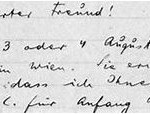 rter Freund!
3 oder 4 August
in Wien. Sie er
dass ich Ihne
C. für Anfang